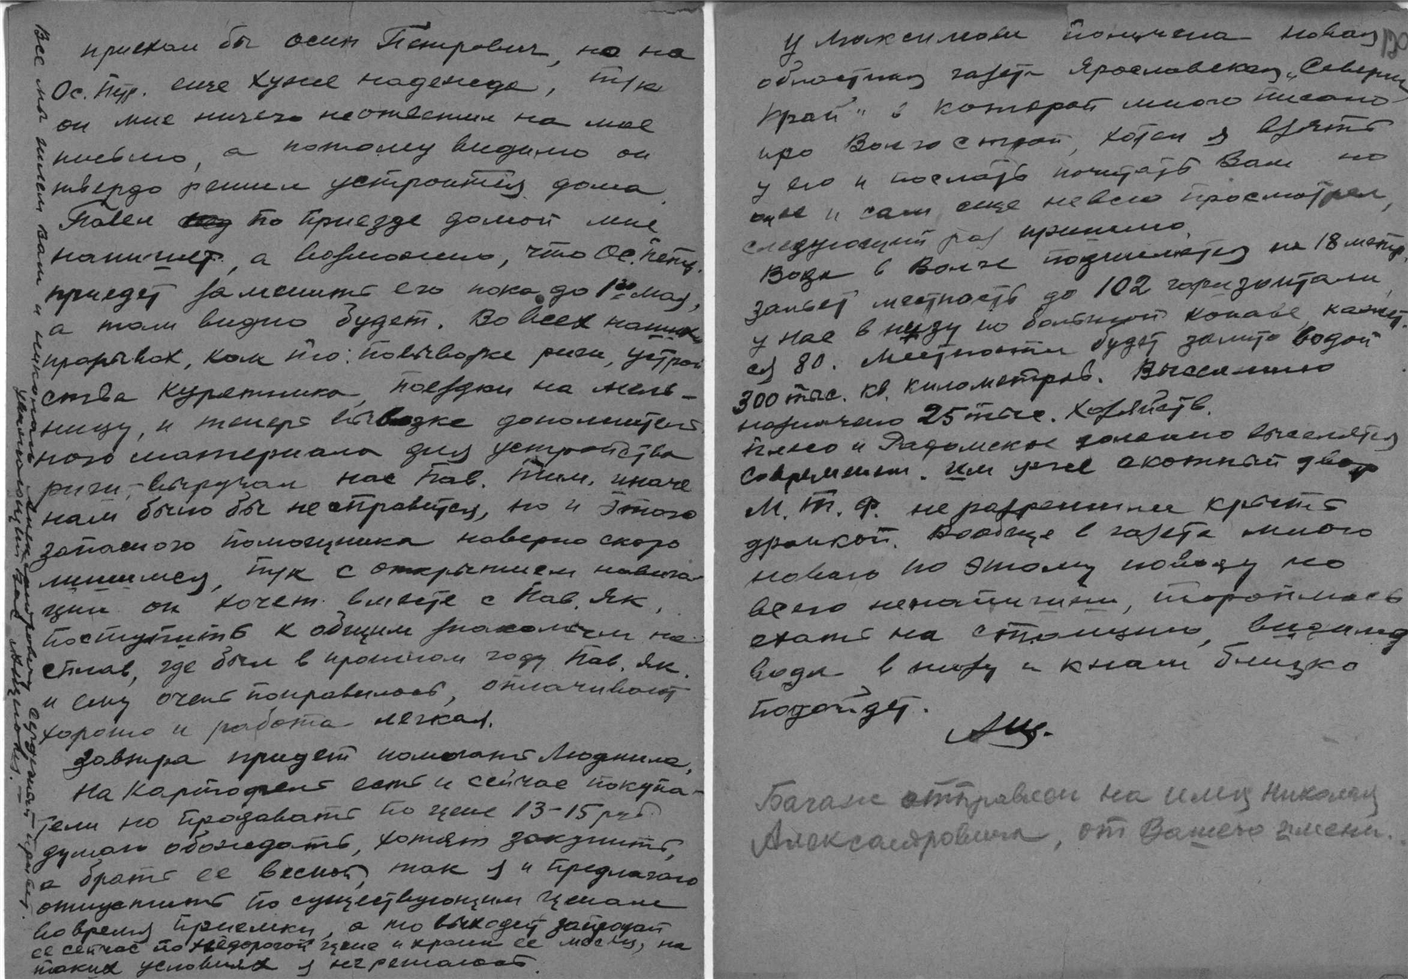 приехал бы Осип Петрович, но на
Ос. Пет. еще хуже надежда, т/к
он мне ничего неответил на мое
письмо, а потому видимо он
твердо решил устроится дома.
Павел по приезде домой мне
напишет, а возможно, что Ос. Петр.
приедет заменить его пока до 1го мая,
а там видно будет. Во всех наших
прорывах, как то: по уборке риги, устрой
ства курятника, поездки на мель-
ницу, и теперь вывозке дополнитель
ного материала для устройства
риги, - выручал нас Пав. Тим. иначе
нам было бы не справится, но и этого
запасного помощника наверно скоро
лишимся, т/к с открытием навига-
ции он хочет вместе с Пав. Як.
поступить к общим знакомым на
сплав, где был в прошлом году Пав. Як.
и ему очень понравилось, оплачивают
хорошо и работа легкая.
Завтра придет помогать Людмила.
На картофель есть и сейчас покупа-
тели но продавать по цене 13-15 руб
думаю обождать, хотят закупить,
а брать ее весной, так я и предлагаю
отпустить по существующим ценам
во время приемки, а то выходит запродай
ее сейчас по недорогой цене и храни ее месяц, на
таких условиях я не решаюсь.
Все мы шлем Вам и Николаю Александровичу сердечный привет.
Уважающий Вас
у Максимова получена новая
областная газета Ярославская „Северный
край" в которой много писано
про Волгострой, хотел я взять
у его и послать почитать Вам но
он ее и сам еще невсю просмотрел,
следующий раз пришлю.
Вода в Волге поднимется на 18 метр.
зальет местность до 102 горизонтали,
у нас в низу по большой канаве, кажет.
ся 80. Местности будет залито водой
300 тыс. кв. километров. Выселению
назначено 25 тыс. хозяйств.
должно выселятся
современем. Им уже скотный двор
М. Т. Ф. неразрешили крыть
дранкой. Вообще в газета много
нового по этому поводу но
всего ненапишеш, тороплюсь
ехать на станцию, видимо
вода в низу и к нам близко
подойдет.
Багаж отправлен на имя Николая
Александровича, от Вашего имени.